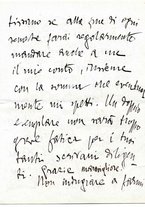 tissimo se alla fine di ogni
semestre farai regolarmente
mandare anche a me
il mio conto, insieme
con la somma che eventual
mente mi spetti. Un doppio
esemplare non sarà troppo
grave fatica per i tuoi
tanti scrivani diligen
ti. Grazie
Non indugiare a farmi